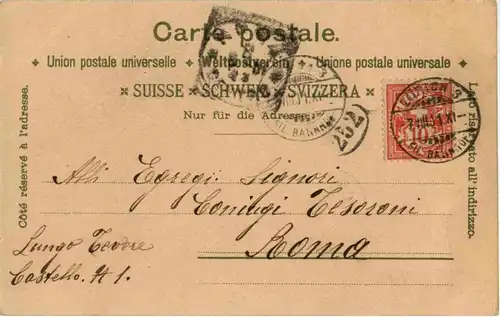 Carte postale.
Union postale universelle ✦ Weltpostverein ✦ Unione postale universale
× SUISSE × SCHWEIZ × SVIZZERA ×
Nur für die Adresse.
Côté réservé à l'adresse.
Lato riservato all'indirizzo.
252
10
BAHNHOF
BAHNHOF
Alli Egregi Signori
Coniugi Tesoroni
Roma
Lungo Tevere
Castello. № 1.